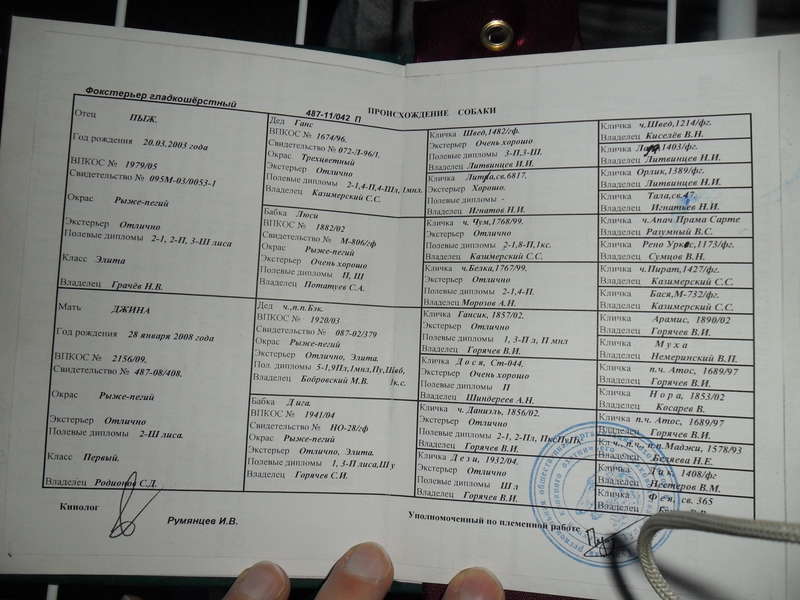 Фокстерьер гладкошёрстный
487-11/042 П
ПРОИСХОЖДЕНИЕ СОБАКИ
Отец ПЫЖ.
Год рождения 20.03.2003 года
ВПКОС № 1979/05
Свидетельство № 095М-03/0053-1
Окрас Рыже-пегий
Экстерьер Отлично
Полевые дипломы 2-1, 2-П, 3-Ш лиси
Класс Элита
Владелец Грачёв И.В.
Мать ДЖИНА
Год рождения 28 января 2008 года
ВПКОС № 2156/09.
Свидетельство № 487-08/408.
Окрас Рыже-пегий
Экстерьер Отлично
Полевые дипломы 2-Ш лиса.
Класс Первый.
Владелец Родионов С.Д.
Дед Ганс
ВПКОС № 1674/96.
Свидетельство № 072-Л-96/1.
Окрас Трехцветный
Экстерьер Отлично
Полевые дипломы 2-1,4-П,4-Шл, 1мнл.
Владелец Казимерский С.С.
Бабка Люси
ВПКОС № 1882/02
Свидетельство № М-806/гф
Окрас Рыже-пегий
Экстерьер Очень хорошо
Полевые дипломы П, Ш
Владелец Потатуев С.А.
Дед ч.,п.п.Бэк.
ВПКОС № 1920/03
Свидетельство № 087-02/379
Окрас Рыже-пегий
Экстерьер Отлично, Элита
Пол. дипломы 5-1,9Пл,1мнл,Пу,Швб,
Владелец Бобровский М.В. 1к.с.
Бабка Дига.
ВПКОС № 1941/04
Свидетельство № НО-28/гф
Окрас Рыже-пегий
Экстерьер Отлично, Элита.
Полевые дипломы 1, 3-П лиса,Шу
Владелец Горячев С.И.
Кличка Швед,1482/гф.
Экстерьер Очень хорошо
Полевые дипломы 3-П,3-Ш.
Владелец Литвинцев И.И.
Кличка Литка,св.6817.
Экстерьер Хорошо.
Полевые дипломы -
Владелец Игнатов Н.И.
Кличка ч. Чум,1768/99.
Экстерьер Отлично
Полевые дипломы 2-1,8-П,1кс.
Владелец Казимерский С.С.
Кличка ч.Белка,1767/99.
Экстерьер Отлично
Полевые дипломы 2-1,4-П.
Владелец Морозов А.Н.
Кличка Гансик, 1857/02.
Экстерьер Отлично
Полевые дипломы 1, 3-П л, П мнл
Владелец Горячев В.И.
Кличка Дося, Ст-044.
Экстерьер Очень хорошо
Полевые дипломы П
Владелец Шиндереев А.Н.
Кличка ч. Даниэль, 1856/02.
Экстерьер Отлично
Полевые дипломы 2-1, 2-Пл,
Владелец Горячев В.И.
Кличка Дези, 1932/04.
Экстерьер Отлично
Полевые дипломы Ш л
Владелец Горячев В.И.
Кличка ч.Швед,1214/фг.
Владелец Киселёв В.Н.
Кличка 1403/фг.
Владелец Литвинцев Н.И.
Кличка Орлик,1389/фг.
Владелец Литвинцев Н.И.
Кличка Тала,св.47.
Владелец Игнатьев Н.И.
Кличка ч.Апач Прама Сарте
Владелец Разумный В.С.
Кличка Рено Уркас,1173/фг.
Владелец Сумцов В.Н.
Кличка ч.Пират,1427/фг.
Владелец Казимерский С.С.
Кличка Бася,М-732/фг.
Владелец Казимерский С.С.
Кличка Арамис, 1890/02
Владелец Горячев В.И.
Кличка Муха
Владелец Немеринский В.П.
Кличка п.ч. Атос, 1689/97
Владелец Горячев В.И.
Кличка Нора, 1853/02
Владелец Косарев В.
Кличка п.ч. Атос, 1689/97
Владелец Горячев В.И.
п.п.Маджи, 1578/93
Владелец Беляева Н.Е.
Кличка Дик, 1408/фг
Владелец Нестеров В.М.
Кличка Фея, св. 365
Владелец
Кинолог
Румянцев И.В.
Уполномоченный по племенной работе